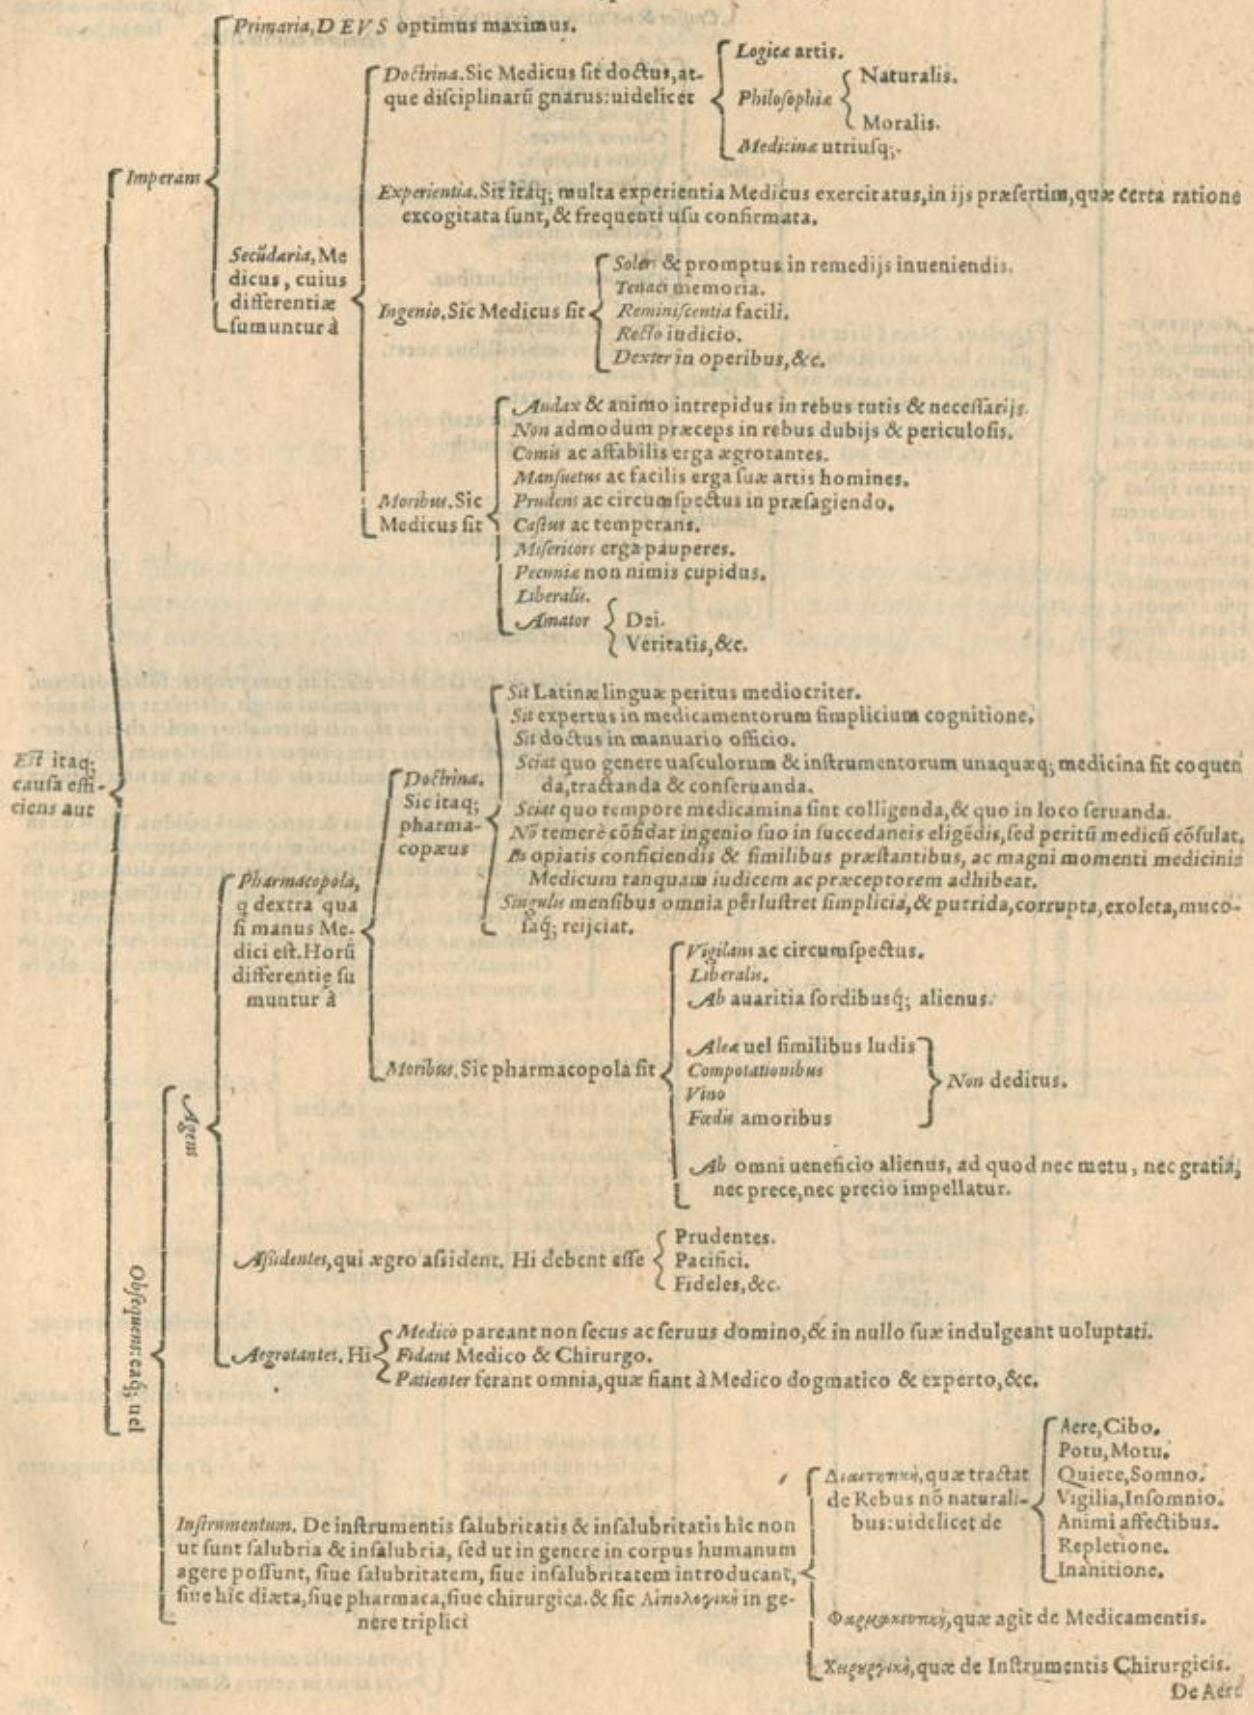 Primaria, DEVS optimus maximus.
Doctrina. Sic Medicus sit doctus, at-
que disciplinarũ gnarus: uidelicet
Logicæ artis.
Philosophiæ
Naturalis.
Moralis.
Medicinæ utriusq;.
Imperans
Experientia. Sit itaq; multa experientia Medicus exercitatus, in ijs præsertim, quæ certa ratione
excogitata sunt, & frequenti usu confirmata.
Secũdaria, Me
dicus, cuius
differentiæ
sumuntur à
Ingenio. Sic Medicus sit
Solers & promptus in remedijs inueniendis.
Tenaci memoria.
Reminiscentia facili.
Recto iudicio.
Dexter in operibus, &c.
Moribus. Sic
Medicus sit
Audax & animo intrepidus in rebus tutis & necessarijs.
Non admodum præceps in rebus dubijs & periculosis.
Comis ac affabilis erga ægrotantes.
Mansuetus ac facilis erga suæ artis homines.
Prudens ac circumspectus in præsagiendo.
Castus ac temperans.
Misericors erga pauperes.
Pecuniæ non nimis cupidus.
Liberalis.
Amator
Dei.
Veritatis, &c.
Est itaq;
causa effi-
ciens aut
Pharmacopola,
q dextra qua
si manus Me-
dici est. Horũ
differentię su
muntur à
Doctrina.
Sic itaq;
pharma-
copæus
Sit Latinæ linguæ peritus mediocriter.
Sit expertus in medicamentorum simplicium cognitione.
Sit doctus in manuario officio.
Sciat quo genere uasculorum & instrumentorum unaquæq; medicina sit coquen
da, tractanda & conseruanda.
Sciat quo tempore medicamina sint colligenda, & quo in loco seruanda.
Nõ temerè cõfidat ingenio suo in succedaneis eligẽdis, sed peritũ medicũ cõsulat.
In opiatis conficiendis & similibus præstantibus, ac magni momenti medicinis
Medicum tanquam iudicem ac præceptorem adhibeat.
Singulis mensibus omnia perlustret simplicia, & putrida, corrupta, exoleta, muco-
saq; reijciat.
Moribus. Sic pharmacopola sit
Vigilans ac circumspectus.
Liberalis.
Ab auaritia sordibusq; alienus.
Aleæ uel similibus ludis
Compotationibus
Vino
Fœdis amoribus
Non deditus.
Ab omni ueneficio alienus, ad quod nec metu, nec gratia,
nec prece, nec precio impellatur.
Agens
Assidentes, qui ægro assident. Hi debent esse
Prudentes.
Pacifici.
Fideles, &c.
Obsequens: eaq; uel
Aegrotantes. Hi
Medico pareant non secus ac seruus domino, & in nullo suæ indulgeant uoluptati.
Fidant Medico & Chirurgo.
Patienter ferant omnia, quæ fiant à Medico dogmatico & experto, &c.
Instrumentum. De instrumentis salubritatis & insalubritatis hîc non
ut sunt salubria & insalubria, sed ut in genere in corpus humanum
agere possunt, siue salubritatem, siue insalubritatem introducant,
siue hîc diæta, siue pharmaca, siue chirurgica. & sic Αἰτιολογικὴ in ge-
nere triplici
Διαιτητικὴ, quæ tractat
de Rebus nõ naturali-
bus: uidelicet de
Aere, Cibo.
Potu, Motu.
Quiete, Somno.
Vigilia, Insomnio.
Animi affectibus.
Repletione.
Inanitione.
Φαρμακευτικὴ, quæ agit de Medicamentis.
Χειρουργικὴ, quæ de Instrumentis Chirurgicis.
De Aere